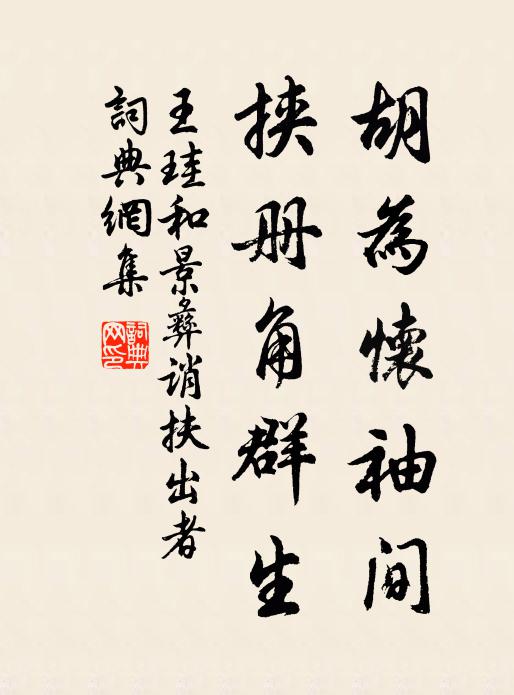 胡為懷袖间
挾册角群生
王珪和景彞誚挟出者
詞典網集
詞典网印